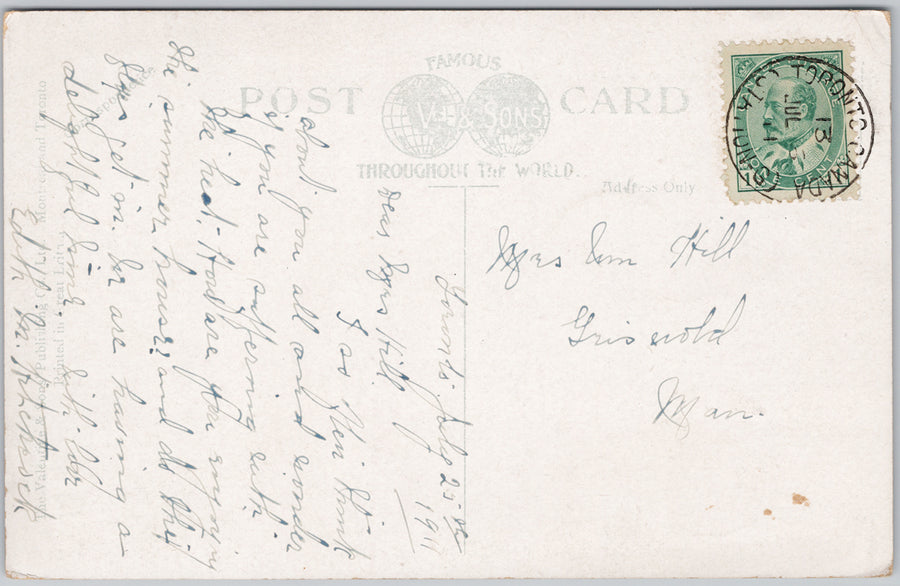 FAMOUS
POST CARD
VAL & SONS
THROUGHOUT THE WORLD.
Address Only
TORONTO CANADA
13
JUL
ONE CENT
Mrs Wm Hill
Griswold
Man.
Toronto July 23rd
1911
Dear Mrs Hill
I so often think
about you all and wonder
if you are suffering with
the heat. How are you enjoying
the summer house? and do the
flies get in. We are having a
delightful time. With love
Edith M.
The Valentine & Sons Publishing Co. Ltd. Montreal and Toronto
Printed in Great Britain